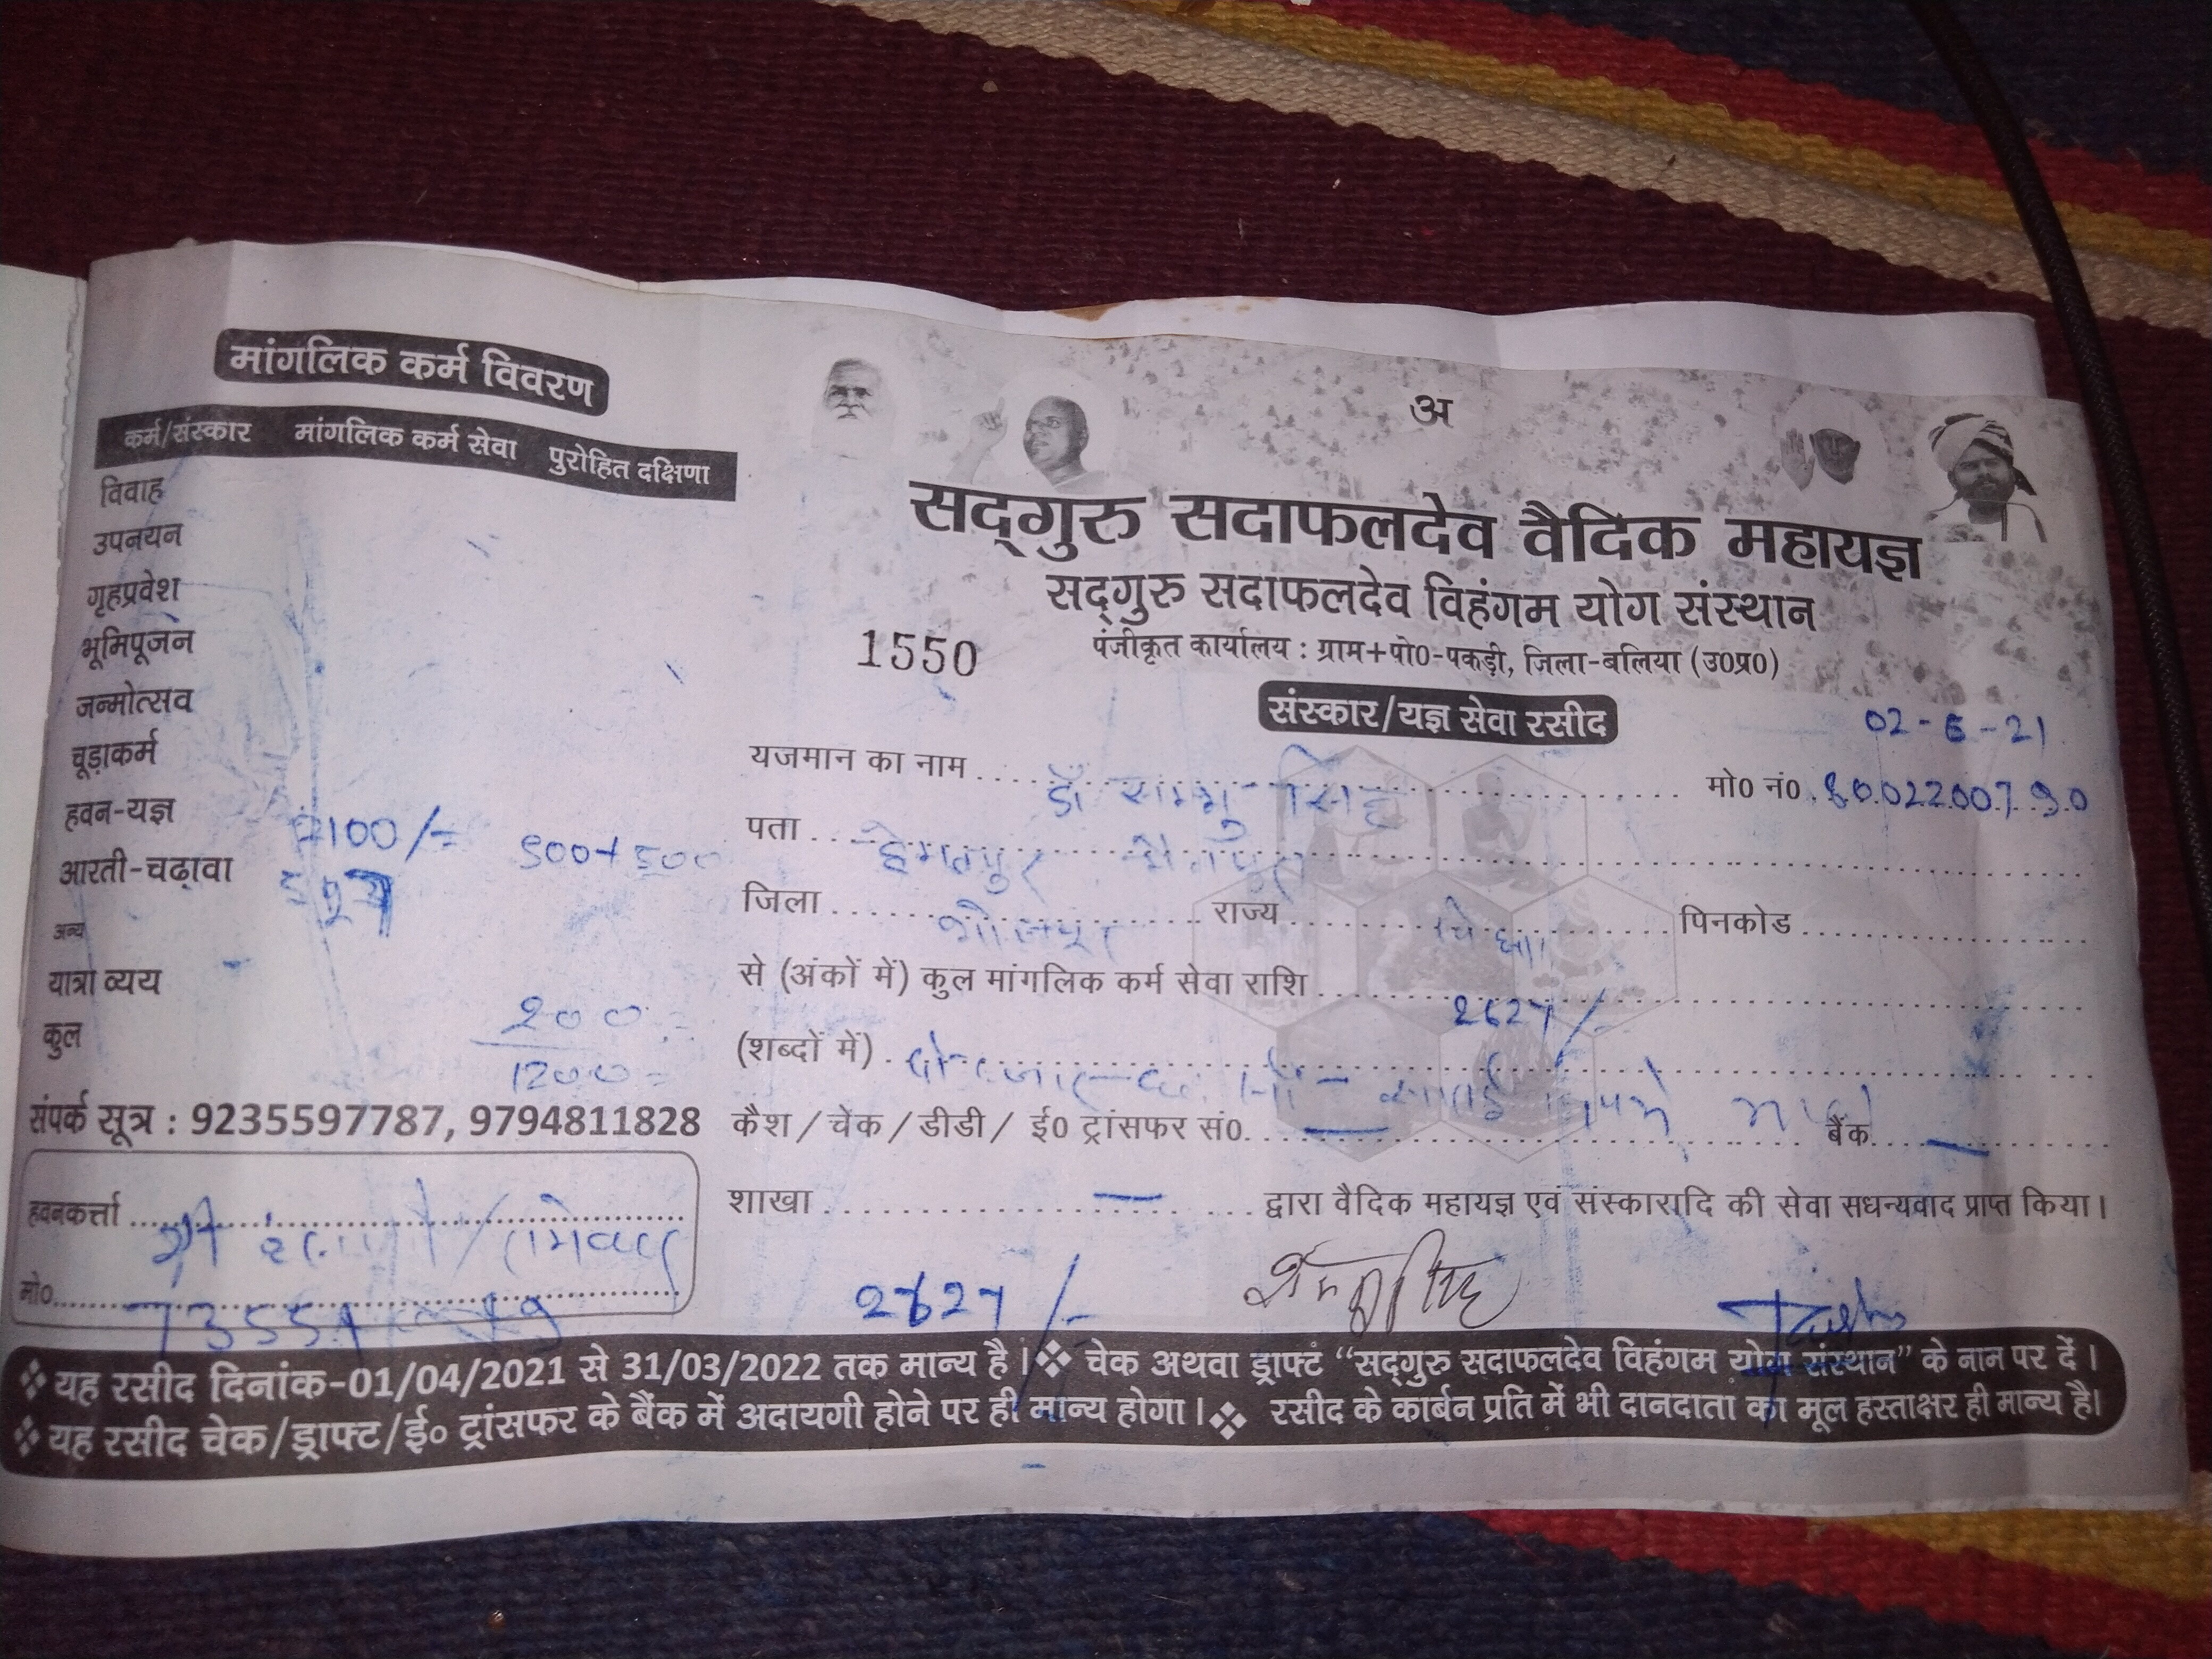 मांगलिक कर्म विवरण
कर्म/संस्कार मांगलिक कर्म सेवा पुरोहित दक्षिणा
विवाह
उपनयन
गृहप्रवेश
भूमिपूजन
जन्मोत्सव
चूड़ाकर्म
हवन-यज्ञ 2100/= 500+500
आरती-चढ़ावा
अन्य
यात्रा व्यय - 200=
कुल 1200=
संपर्क सूत्र : 9235597787, 9794811828
हवनकर्त्ता श्री
मो०
अ
सद्‌गुरु सदाफलदेव वैदिक महायज्ञ
सद्‌गुरु सदाफलदेव विहंगम योग संस्थान
1550 पंजीकृत कार्यालय : ग्राम+पो0-पकड़ी, जिला-बलिया (उ0प्र0)
संस्कार/यज्ञ सेवा रसीद
02-6-21
यजमान का नाम डॉ सिंह मो0 नं0. 8002200790
पता
जिला राज्य पिनकोड
से (अंकों में) कुल मांगलिक कर्म सेवा राशि 2627/-
(शब्दों में)
कैश/चेक/डीडी/ ई0 ट्रांसफर सं0. — बैंक —
शाखा — द्वारा वैदिक महायज्ञ एवं संस्कारादि की सेवा सधन्यवाद प्राप्त किया।
2627/-
❖ यह रसीद दिनांक-01/04/2021 से 31/03/2022 तक मान्य है। ❖ चेक अथवा ड्राफ्ट “सद्‌गुरु सदाफलदेव विहंगम योग संस्थान” के नाम पर दें।
❖ यह रसीद चेक/ड्राफ्ट/ई० ट्रांसफर के बैंक में अदायगी होने पर ही मान्य होगा। ❖ रसीद के कार्बन प्रति में भी दानदाता का मूल हस्ताक्षर ही मान्य है।